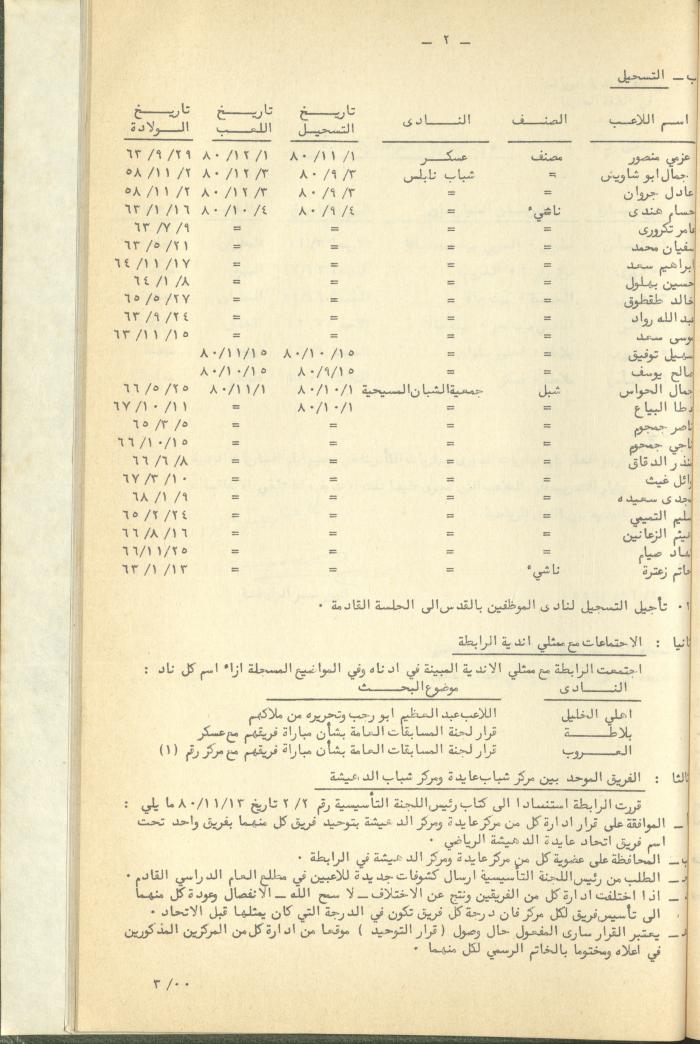 — ٢ —
ب — التسجيل
اسم اللاعب الصنف النادى تاريخ التسجيل تاريخ اللعب تاريخ الولادة
عزمي منصور مصنف عسكر ٨٠/١١/١ ٨٠/١٢/١ ٦٣/٩/٢٩
جمال ابو شاويش = شباب نابلس ٨٠/٩/٣ ٨٠/١٢/٣ ٥٨/١١/٢
عادل جروان = = ٨٠/٩/٣ ٨٠/١٢/٣ ٥٨/١١/٢
حسام هندى ناشيء = ٨٠/٩/٤ ٨٠/١٠/٤ ٦٣/١/١٦
عامر تكرورى = = = = ٦٣/٧/٩
سفيان محمد = = = = ٦٣/٥/٢١
ابراهيم سعد = = = = ٦٤/١١/١٧
حسين بهلول = = = = ٦٤/١/٨
خالد طقطوق = = = = ٦٥/٥/٢٧
عبد الله رواد = = = = ٦٣/٩/٢٤
موسى سعد = = = = ٦٣/١١/١٥
سهيل توفيق = = ٨٠/١٠/١٥ ٨٠/١١/١٥
صالح يوسف = = ٨٠/٩/١٥ ٨٠/١٠/١٥
جمال الحواس شبل جمعية الشبان المسيحية ٨٠/١٠/١ ٨٠/١١/١ ٦٦/٥/٢٥
عطا البياع = = ٨٠/١٠/١ = ٦٧/١٠/١١
ناصر جمجوم = = = = ٦٥/٣/٥
ناجي جمجوم = = = = ٦٦/١٠/١٥
منذر الدقاق = = = = ٦٦/٦/٨
وائل غيث = = = = ٦٧/٣/١٠
مجدى سعيده = = = = ٦٨/١/٩
سليم التميمي = = = = ٦٥/٢/٢٤
هيثم الزعانين = = = = ٦٦/٨/١٦
صيام = = = = ٦٦/١١/٢٥
حاتم زعترة ناشيء = = = ٦٣/١/١٣
١٠ تأجيل التسجيل لنادى الموظفين بالقدس الى الجلسة القادمة ٠
ثانيا : الاجتماعات مع ممثلي اندية الرابطة
اجتمعت الرابطة مع ممثلي الاندية المبينة في ادناه وفي المواضيع المسجلة ازاء اسم كل ناد :
النادى موضوع البحث
اهلي الخليل اللاعب عبد العظيم ابو رجب وتحريره من ملاكهم
بلاطة قرار لجنة المسابقات العامة بشأن مباراة فريقهم مع عسكر
العروب قرار لجنة المسابقات العامة بشأن مباراة فريقهم مع مركز رقم (١)
ثالثا : الفريق الموحد بين مركز شباب عايدة ومركز شباب الدهيشة
قررت الرابطة استنسادا الى كتاب رئيس اللجنة التأسيسية رقم ٢/٢ تاريخ ٨٠/١١/١٣ ما يلي :
ا — الموافقة على قرار ادارة كل من مركز عايدة ومركز الدهيشة بتوحيد فريق كل منهما بفريق واحد تحت
اسم فريق اتحاد عايدة الدهيشة الرياضي ٠
ب — المحافظة على عضوية كل من مركز عايدة ومركز الدهيشة في الرابطة ٠
— الطلب من رئيس اللجنة التأسيسية ارسال كشوفات جديدة للاعبين في مطلع العام الدراسي القادم ٠
— اذا اختلفت ادارة كل من الفريقين ونتج عن الاختلاف — لا سمح الله — الانفصال وعودة كل منهما
الى تأسيس فريق لكل مركز فان درجة كل فريق تكون في الدرجة التي كان يمثلها قبل الاتحاد ٠
— يعتبر القرار سارى المفعول حال وصول ( قرار التوحيد ) موقعا من ادارة كل من المركزين المذكورين
في اعلاه ومختوما بالخاتم الرسمي لكل منهما ٠
٠٠/٣